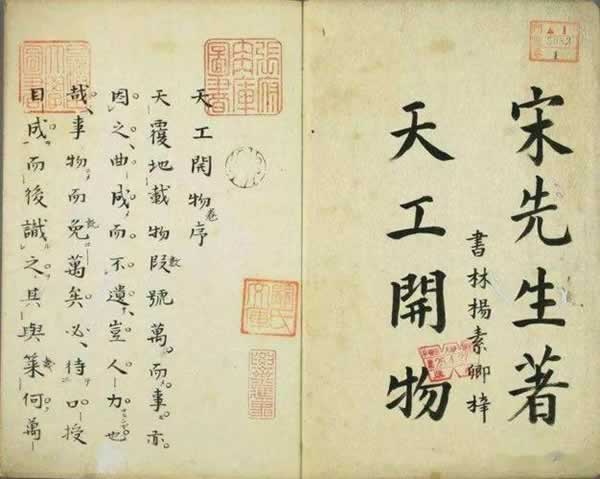 宋先生著
書林揚素卿梓
天工開物
天工開物卷序
天覆地載物段號萬而事亦
因之曲成而不遺豈人力也
哉事物而免萬矣必待口授
目成而後識之其與何萬